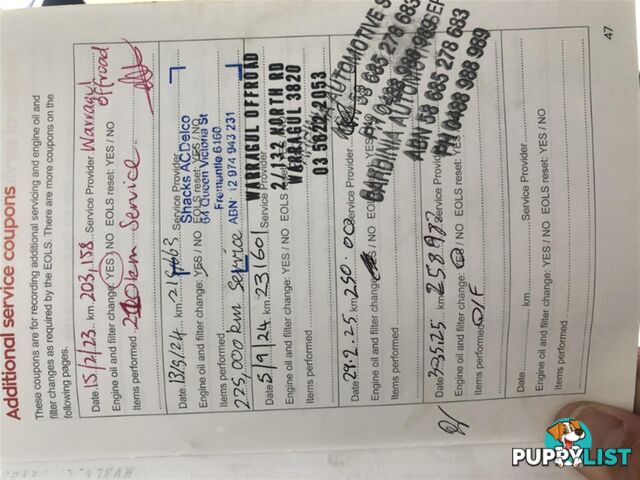 Additional service coupons
These coupons are for recording additional servicing and engine oil and
filter changes as required by the EOLS. There are more coupons on the
following pages.
Date 15/2/23 km 203,158 Service Provider Warragul
Offroad
Engine oil and filter change: YES / NO EOLS reset: YES / NO
Items performed km Service
Date km Service Provider
Shacks ACDelco
Engine oil and filter change: YES / NO EOLS reset: YES / NO
64 Queen Victoria St
Fremantle 6160
Items performed
ABN: 12 974 943 231
225,000 km Service
WARRAGUL OFFROAD
2/132 NORTH RD
WARRAGUL 3820
03 5622 2053
Date 5/9/24 km 231601 Service Provider
Engine oil and filter change: YES / NO EOLS
Items performed
Date 29.2.25 km 250.000
AUTOMOTIVE S
58 685 278 683
Engine oil and filter change: NO EOLS
Items performed
CARDINIA AUTOMOTIVE SER
ABN 58 685 278 683
PH 0488 988 989
Date km 258987
Engine oil and filter change: / NO EOLS reset: YES / NO
Items performed O/F
Date km Service Provider
Engine oil and filter change: YES / NO EOLS reset: YES / NO
Items performed
47
PUPPYLIST